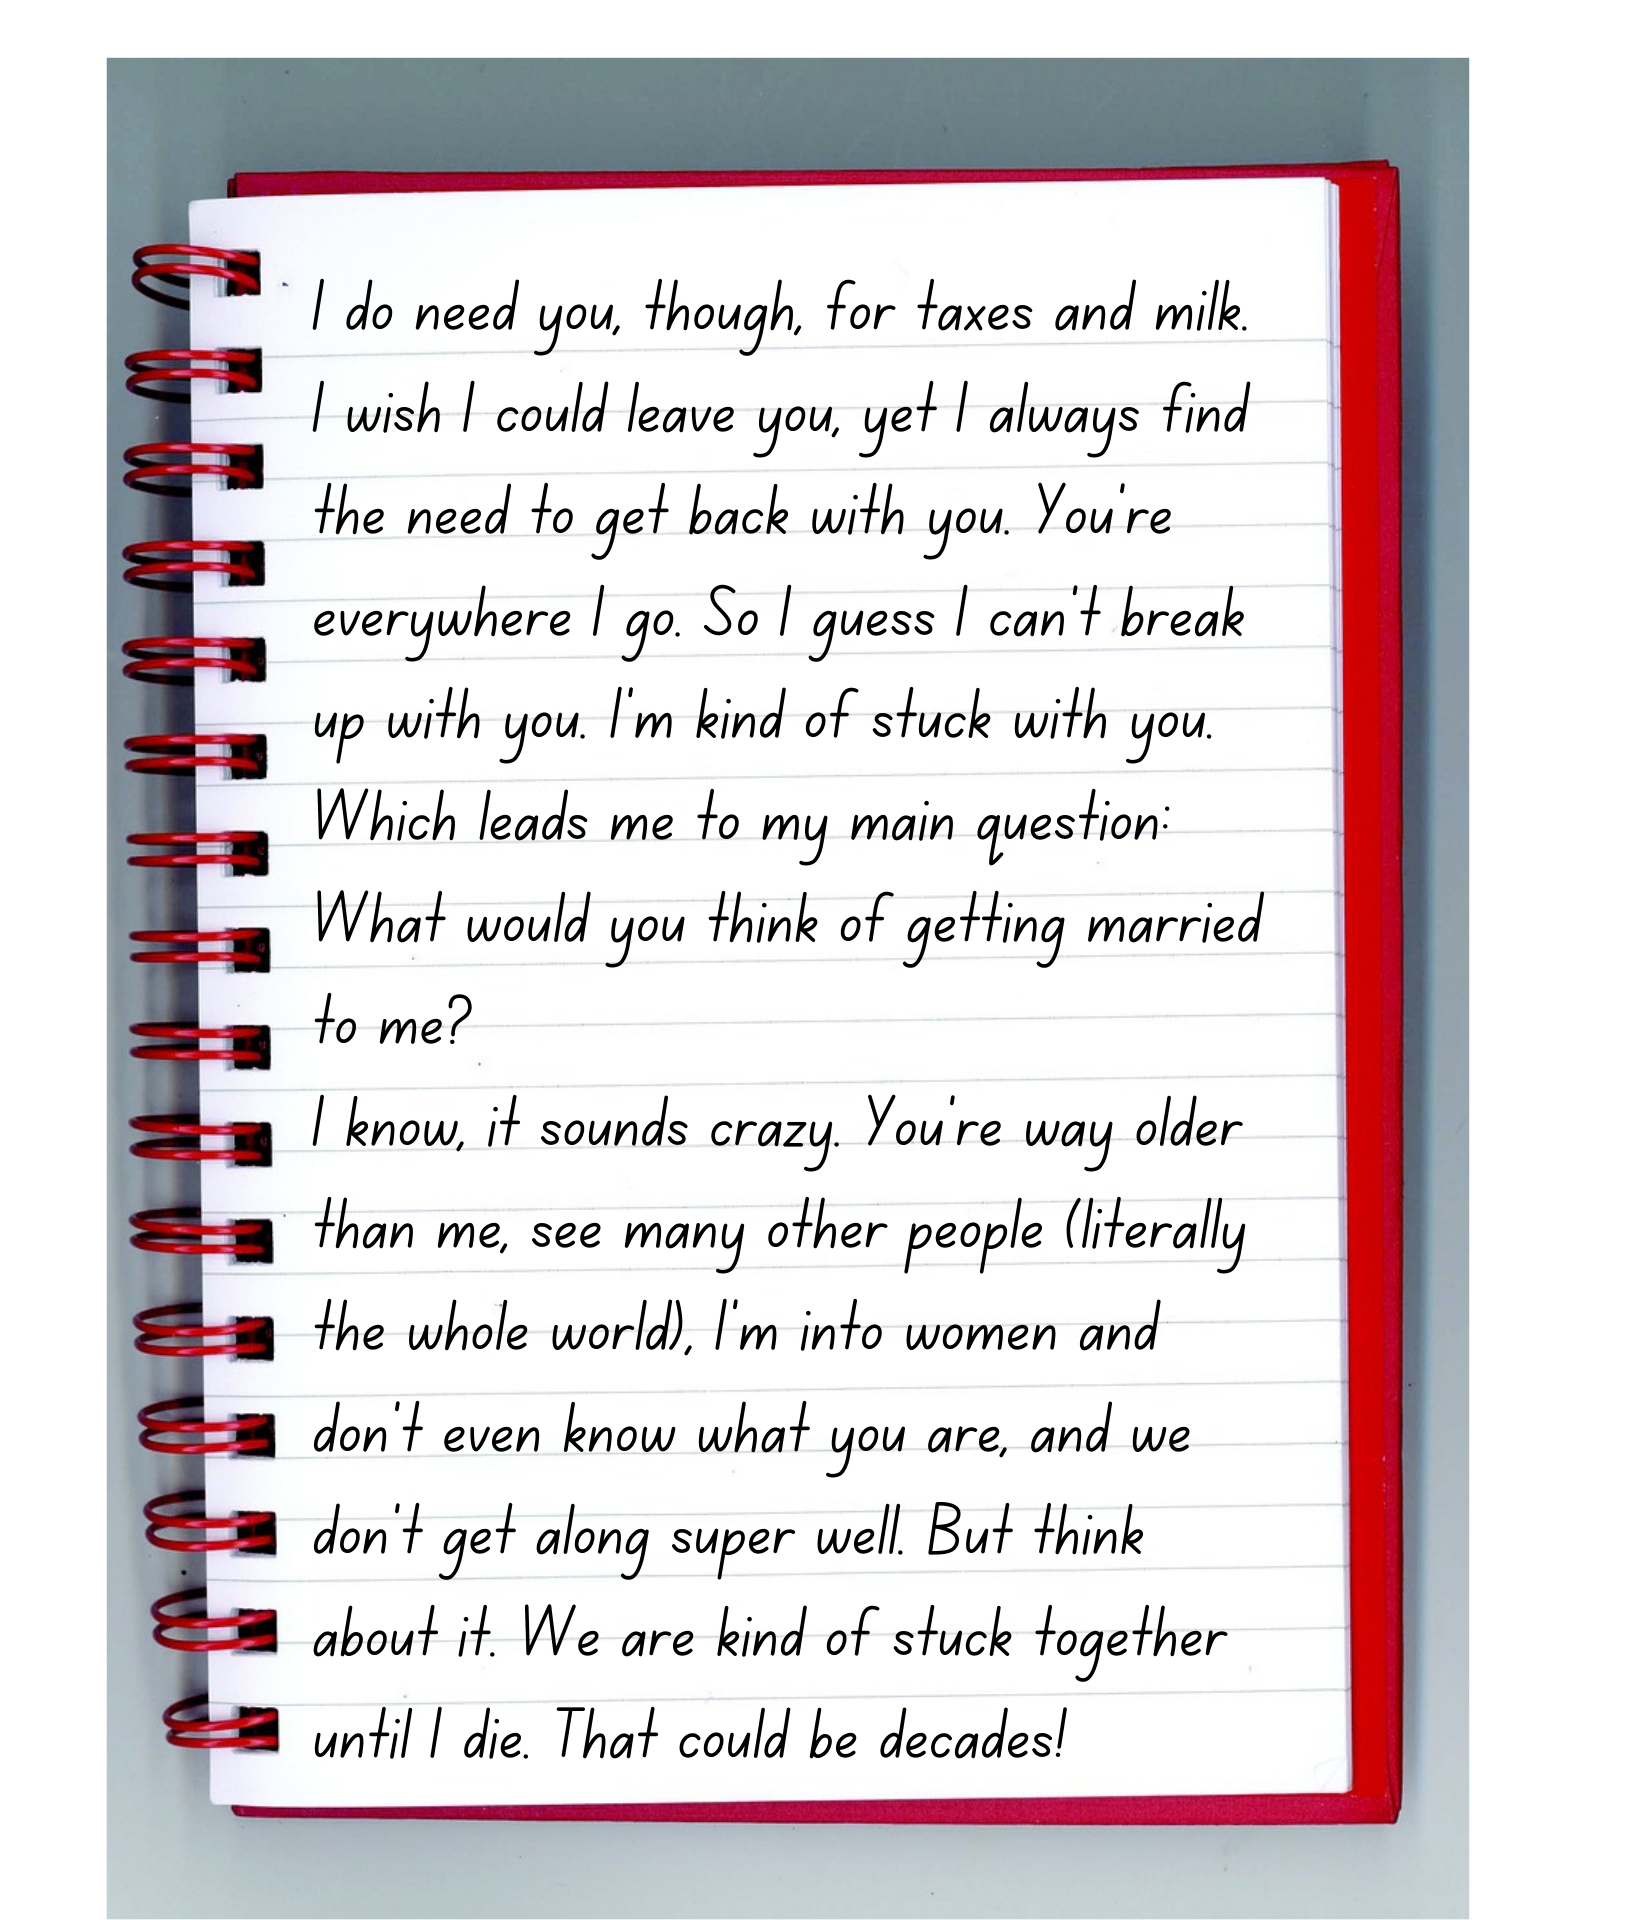 I do need you, though, for taxes and milk.
I wish I could leave you, yet I always find
the need to get back with you. You're
everywhere I go. So I guess I can't break
up with you. I'm kind of stuck with you.
Which leads me to my main question:
What would you think of getting married
to me?
I know, it sounds crazy. You're way older
than me, see many other people (literally
the whole world), I'm into women and
don't even know what you are, and we
don't get along super well. But think
about it. We are kind of stuck together
until I die. That could be decades!